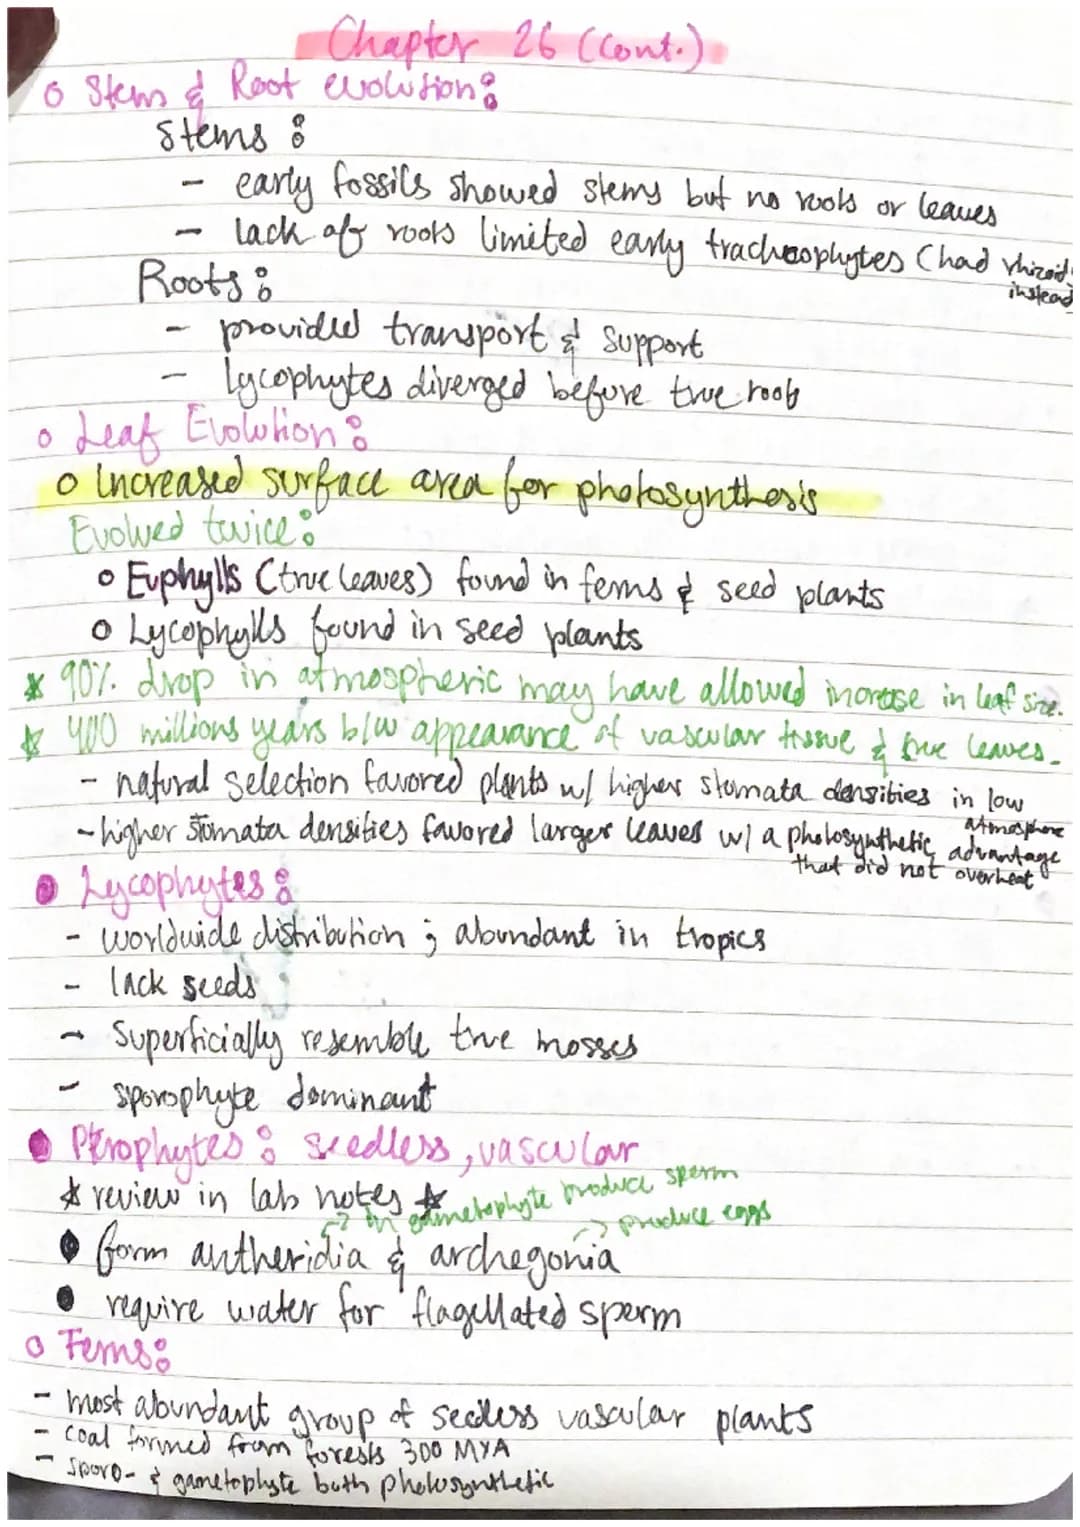 Chapter 26 (Cont.)
o Stem & Root evolution:
Stems:
- early fossils showed stems but no roots or leaves
- lack of roots limited early tracheophytes (had rhizoids
instead
Roots:
- provided transport & support
- lycophytes diverged before true roots
o Leaf Evolution:
o Increased surface area for photosynthesis
Evolved twice:
o Euphylls (true leaves) found in ferns & seed plants
o Lycophylls found in seed plants
* 90% drop in atmospheric may have allowed increase in leaf size.
* 400 millions years b/w appearance of vascular tissue & true leaves.
- natural selection favored plants w/ higher stomata densities in low
atmosphere
- higher stomata densities favored larger leaves w/ a photosynthetic advantage
that did not overheat
● Lycophytes:
- worldwide distribution; abundant in tropics
- lack seeds
- Superficially resemble true mosses
- sporophyte dominant
● Pterophytes: seedless, vascular
* review in lab notes *
→ in gametophyte produce sperm
→ produce eggs
● form antheridia & archegonia
● require water for flagellated sperm
o Ferns:
- most abundant group of seedless vascular plants
- coal formed from forests 300 MYA
- sporo- & gametophyte both photosynthetic